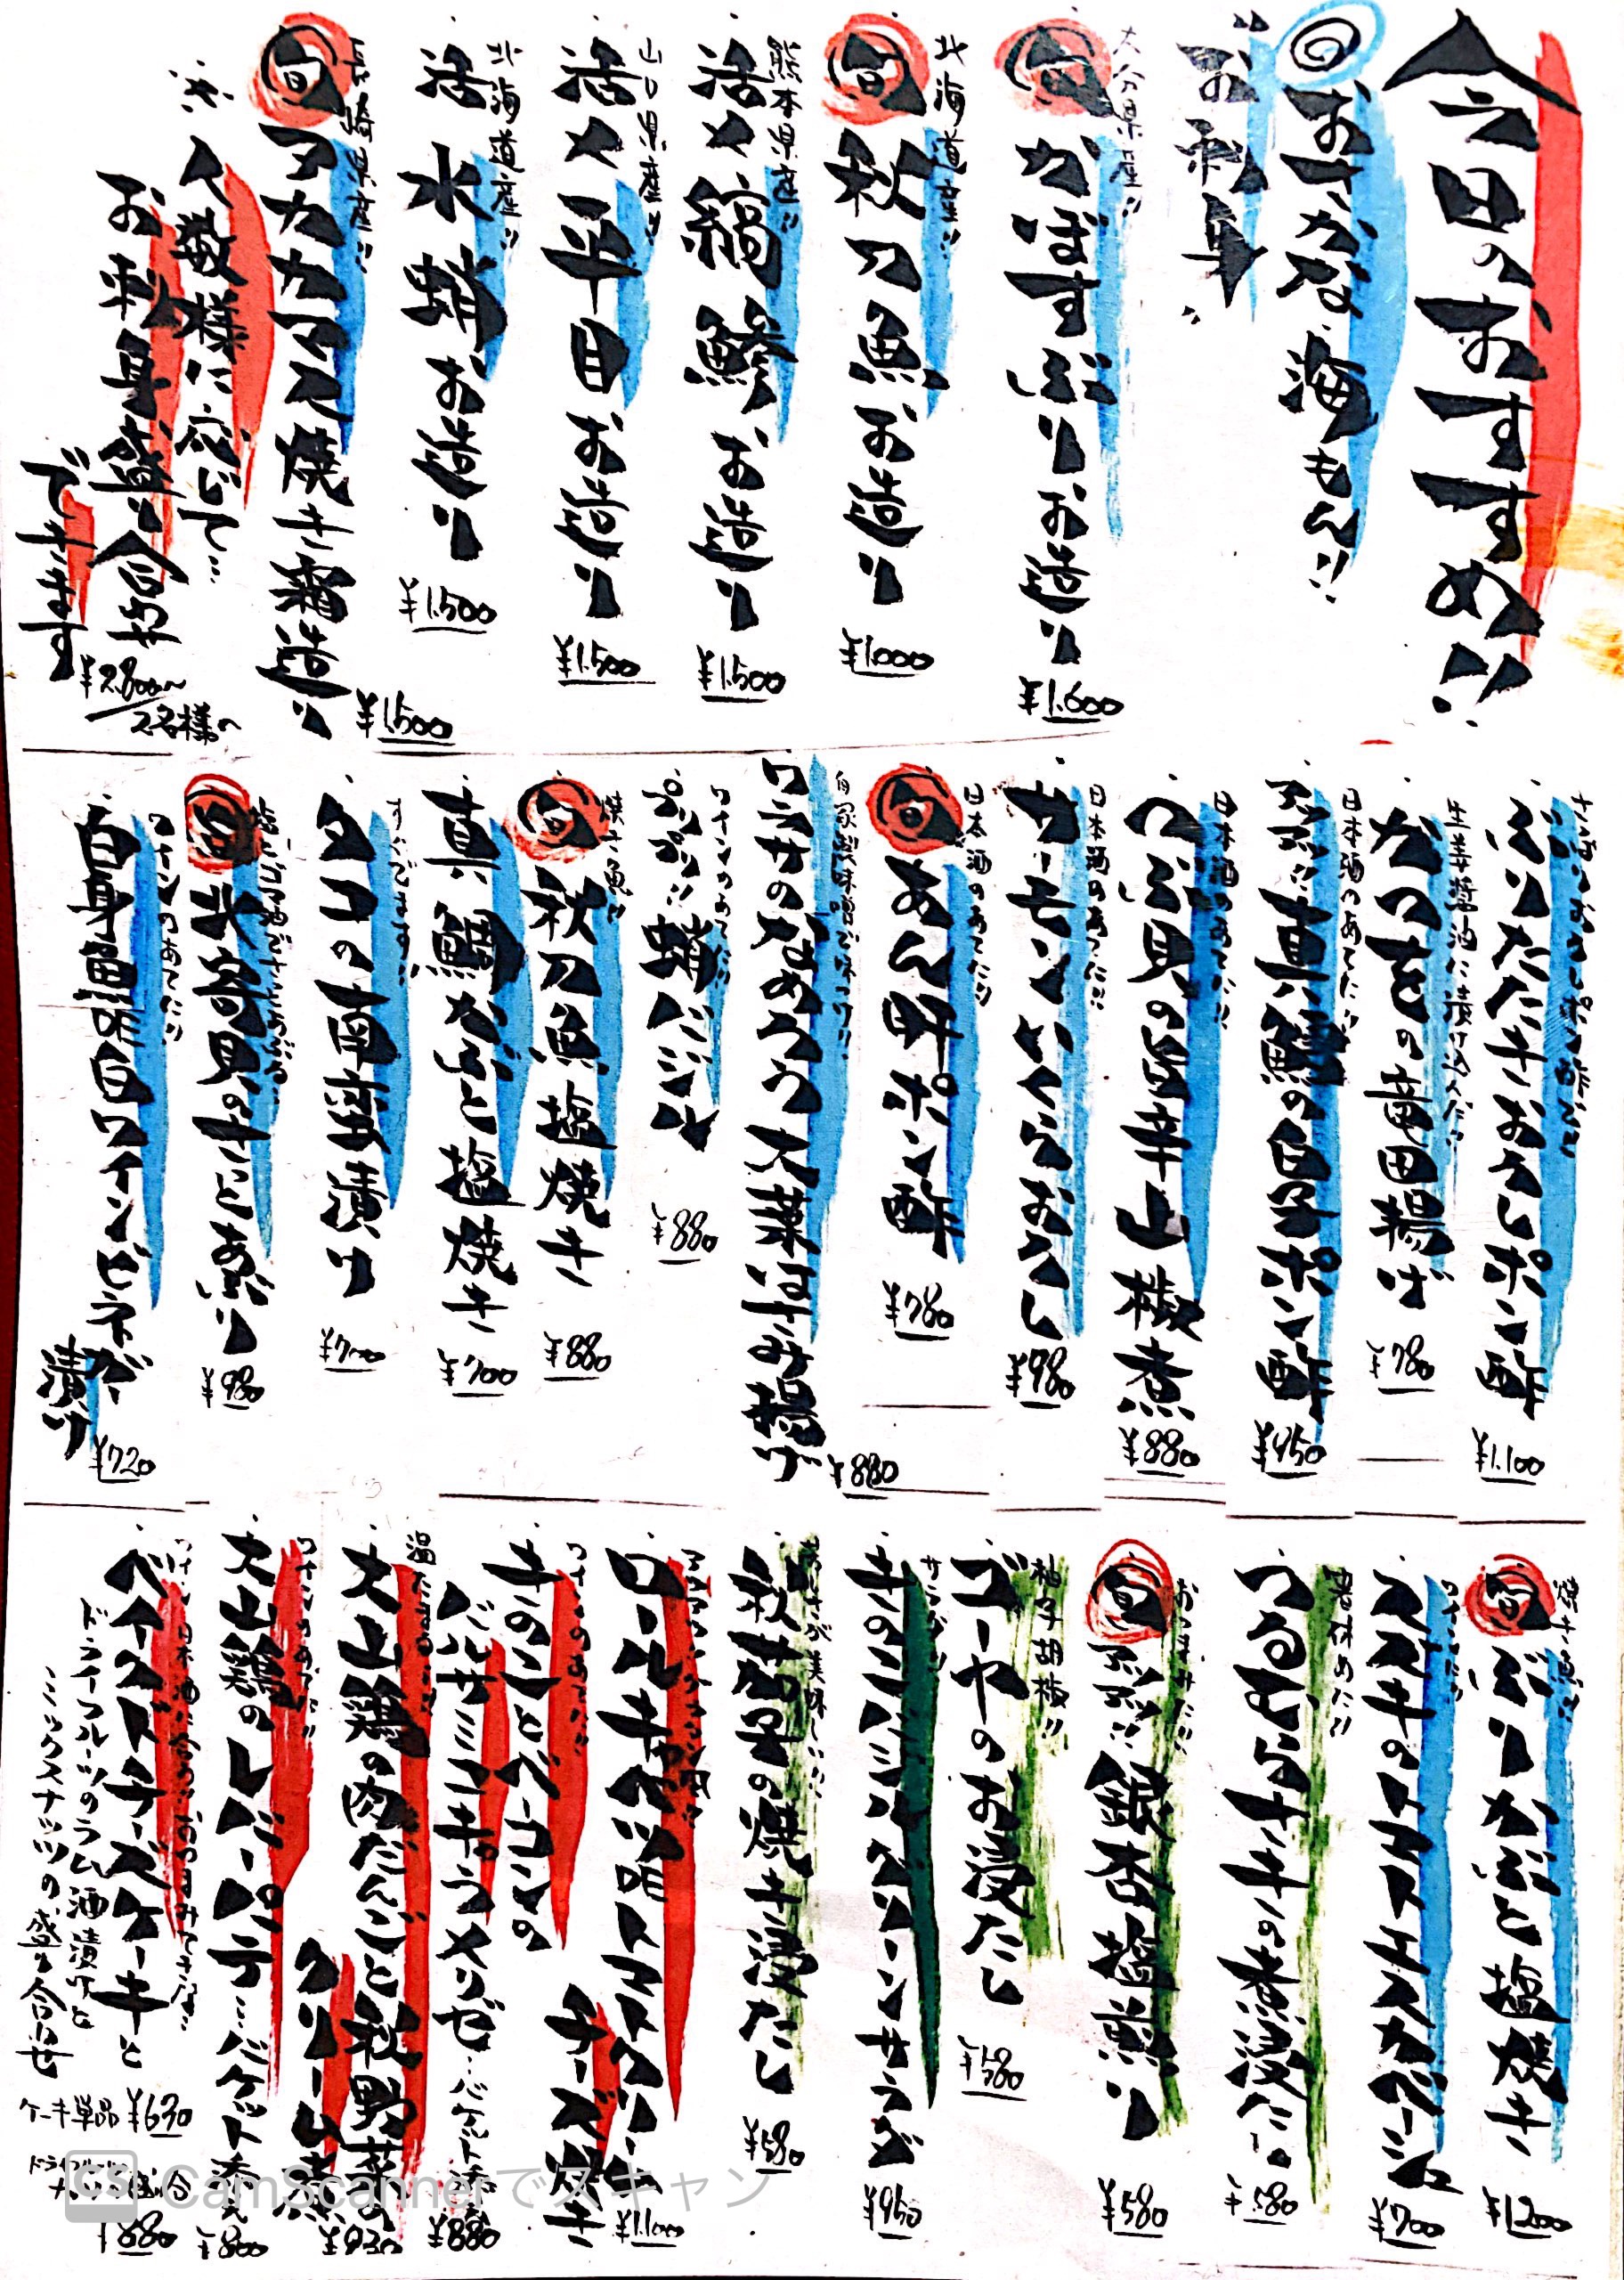 今日のおすすめ!!
おさかな海もん!!
お刺身
大分県産!!
旬 かぼすぶりお造り
¥1.600
北海道産!!
旬 秋刀魚お造り
¥1.000
熊本県産!!
活〆縞鯵お造り
¥1.500
山口県産!!
活〆平目お造り
¥1.500
北海道産!!
活水蛸お造り
¥1.500
長崎県産!!
旬 アカカマス焼き霜造り
¥1.500
人数様に応じて…
お刺身盛り合わせ
できます
¥2.800〜
2名様〜
ぶりたたきおろしポン酢
¥1.100
生姜醤油に漬け込んだ!!
かつをの竜田揚げ
¥780
日本酒のあてに!!
珍!!真鱈の白子ポン酢
¥950
日本酒のあてに!!
つぶ貝の旨辛山椒煮
¥880
日本酒のあてに!!
サーモンいくらおろし
¥980
日本酒のあてに!!
旬 あん肝ポン酢
¥780
ワラサのなめろう大葉はさみ揚げ
¥880
ワインのあてに!!
プリプリ!!蛸にんにく
¥880
焼き魚!!
旬 秋刀魚塩焼き
¥880
真鯛かぶと塩焼き
¥700
すぐでます!!
タコの南蛮漬け
¥700
旬 北寄貝のさっとあぶり
¥980
ワインのあてに!!
白身魚の白ワインビネガー
漬け
¥720
焼き魚!!
旬 ぶりかぶと塩焼き
¥1200
ワインに!!
スズキのトマトチーズカナッペ
¥700
箸休めに!!
つるむらさきの煮浸たし
¥580
おつまみに!!
旬 珍!!銀杏塩煎り
¥580
柚子胡椒!!
ゴーヤのお浸たし
¥580
サラダ!!
きのこシーザーサラダ
¥950
秋茄子の焼き浸たし
¥580
ロールキャベツ
トマトクリーム
¥1.100
ワインのあてに!!
きのことベーコンの
チーズ焼き
バルサミコ
¥880
温たまる!!
大山鶏の肉だんごと秋野菜の
クリーム煮
¥930
ワインのあてに!!
大山鶏のレバーパテ…バケット添え
¥800
ベイクドチーズケーキと
ドライフルーツのラム酒漬けと
ミックスナッツの盛り合わせ
ケーキ単品 ¥630
¥880
CS CamScannerでスキャン